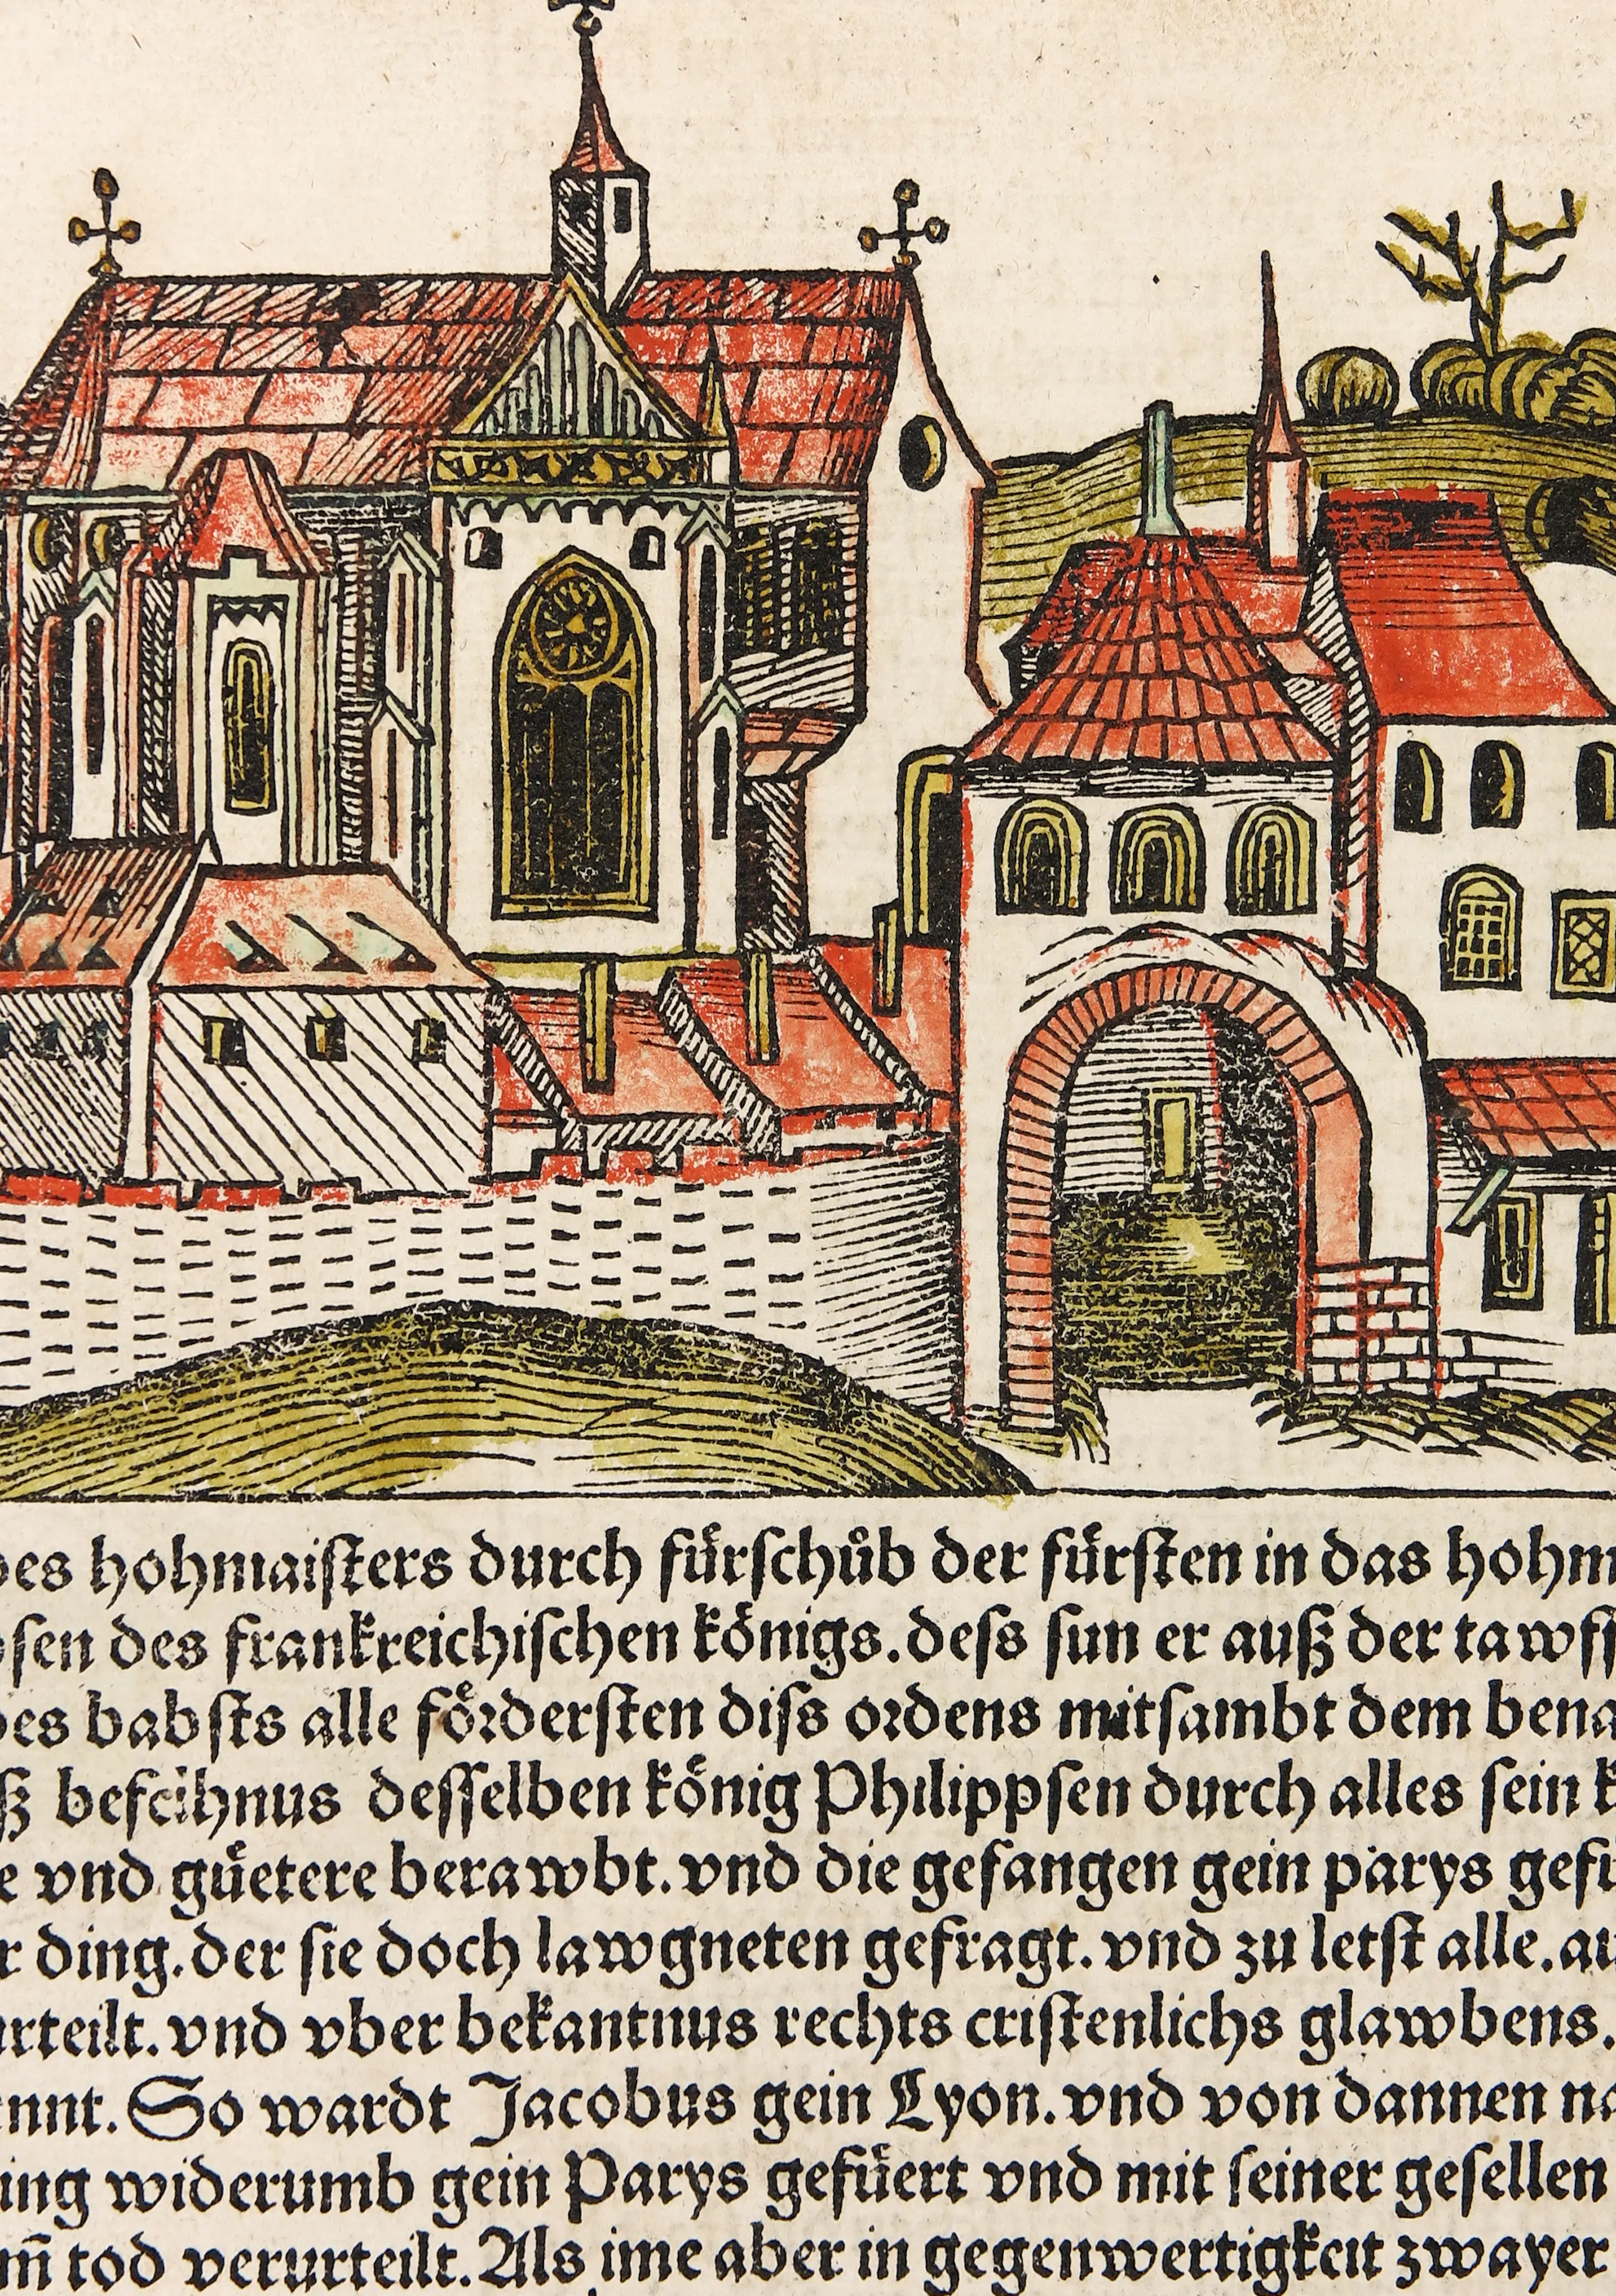 des hohmaiſters durch fuͤrſchuͦb der fuͤrſten in das hohm
pſen des frankreichiſchen koͤnigs. deſs ſun er auß der tawff
des babſts alle foͤrderſten diſs ordens mitſambt dem bena
ß befelhnus deſſelben koͤnig Philippſen durch alles ſein k
e vnd guͤetere berawbt. vnd die gefangen gein parys gefu
r ding. der ſie doch lawgneten gefragt. vnd zu letſt alle. au
urteilt. vnd vber bekantnus rechts criſtenlichs glawbens.
ennt. So wardt Jacobus gein Lyon. vnd von dannen na
ing widerumb gein Parys gefuͤert vnd mit ſeiner geſellen
m̄ tod verurteilt. Als ime aber in gegenwertigkeit zwayer